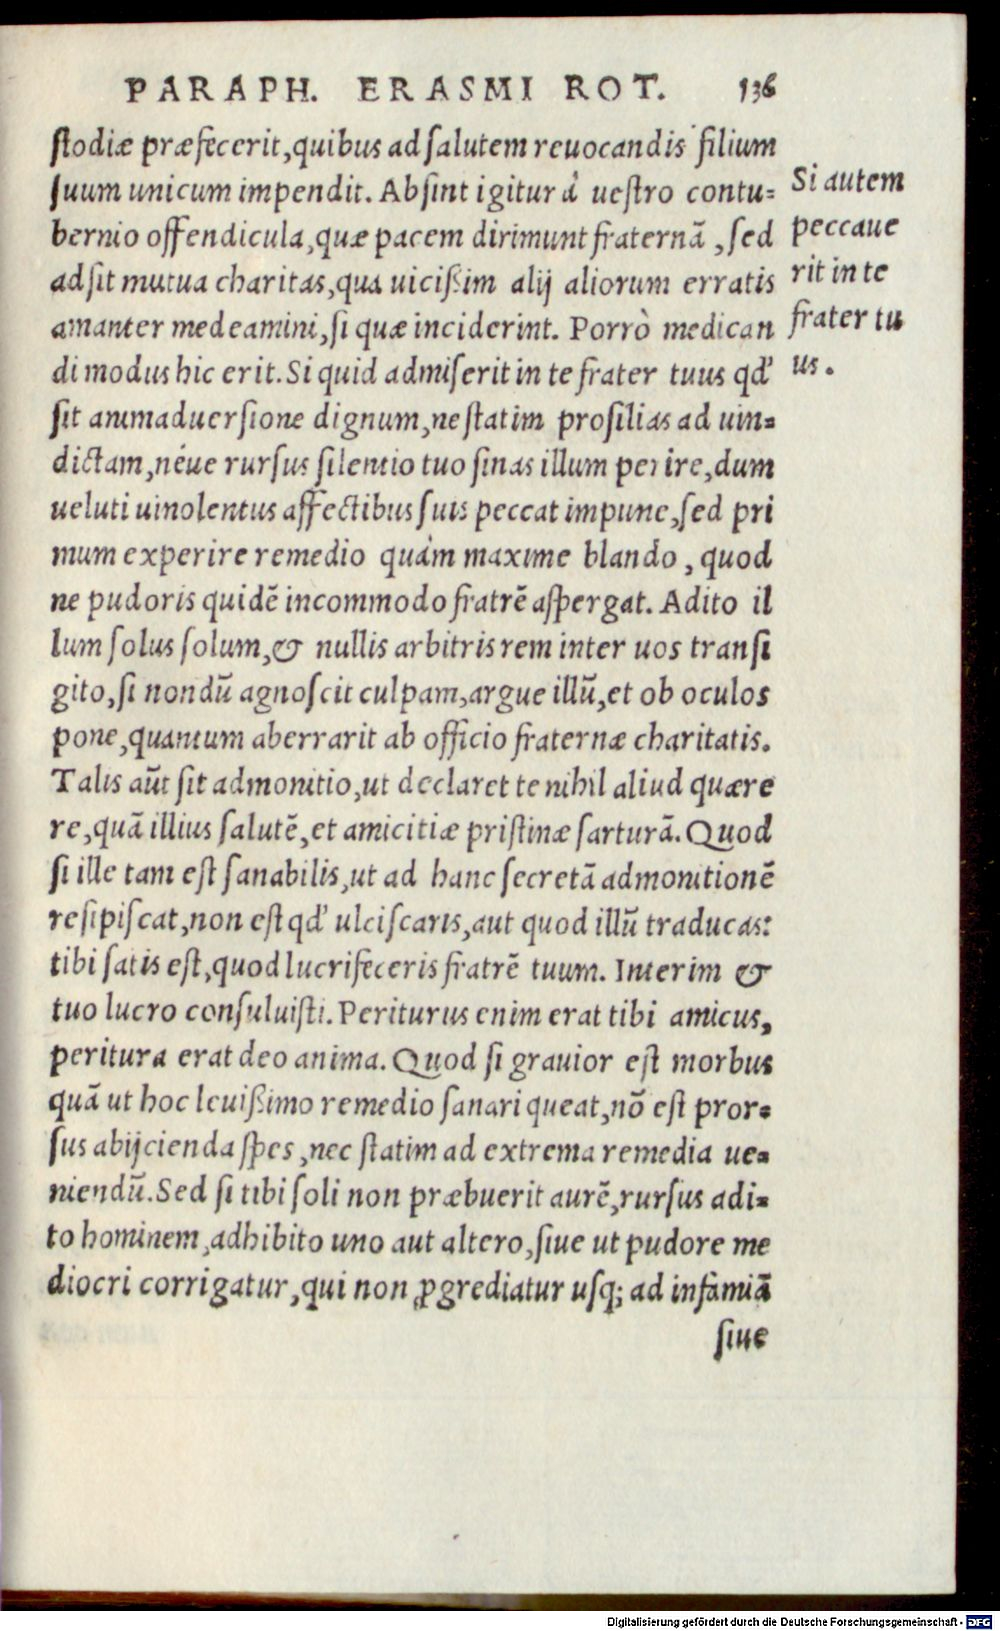 PARAPH. ERASMI ROT. 136
stodiæ præfecerit, quibus ad salutem reuocandis filium
suum unicum impendit. Absint igitur à uestro contu=
bernio offendicula, quæ pacem dirimunt fraternā, sed
adsit mutua charitas, qua uicißim alij aliorum erratis
amanter medeamini, si quæ inciderint. Porrò medican
di modus hic erit. Si quid admiserit in te frater tuus qd'
sit animaduersione dignum, ne statim prosilias ad uin=
dictam, néue rursus silentio tuo sinas illum perire, dum
ueluti uinolentus affectibus suis peccat impune, sed pri
mum experire remedio quàm maxime blando, quod
ne pudoris quidē incommodo fratrē aspergat. Adito il
lum solus solum, & nullis arbitris rem inter uos transi
gito, si nondū agnoscit culpam, argue illū, et ob oculos
pone, quantum aberrarit ab officio fraternæ charitatis.
Talis aūt sit admonitio, ut declaret te nihil aliud quære
re, quā illius salutē, et amicitiæ pristinæ sarturā. Quod
si ille tam est sanabilis, ut ad hanc secretā admonitionē
resipiscat, non est qd' ulciscaris, aut quod illū traducas:
tibi satis est, quod lucrifeceris fratrē tuum. Interim &
tuo lucro consuluisti. Periturus enim erat tibi amicus,
peritura erat deo anima. Quod si grauior est morbus
quā ut hoc leuißimo remedio sanari queat, nō est pror=
sus abijcienda spes, nec statim ad extrema remedia ue=
niendū. Sed si tibi soli non præbuerit aurē, rursus adi=
to hominem, adhibito uno aut altero, siue ut pudore me
diocri corrigatur, qui non ꝓgrediatur usq; ad infamiā
siue
Si autem
peccaue
rit in te
frater tu
us.
Digitalisierung gefördert durch die Deutsche Forschungsgemeinschaft - DFG